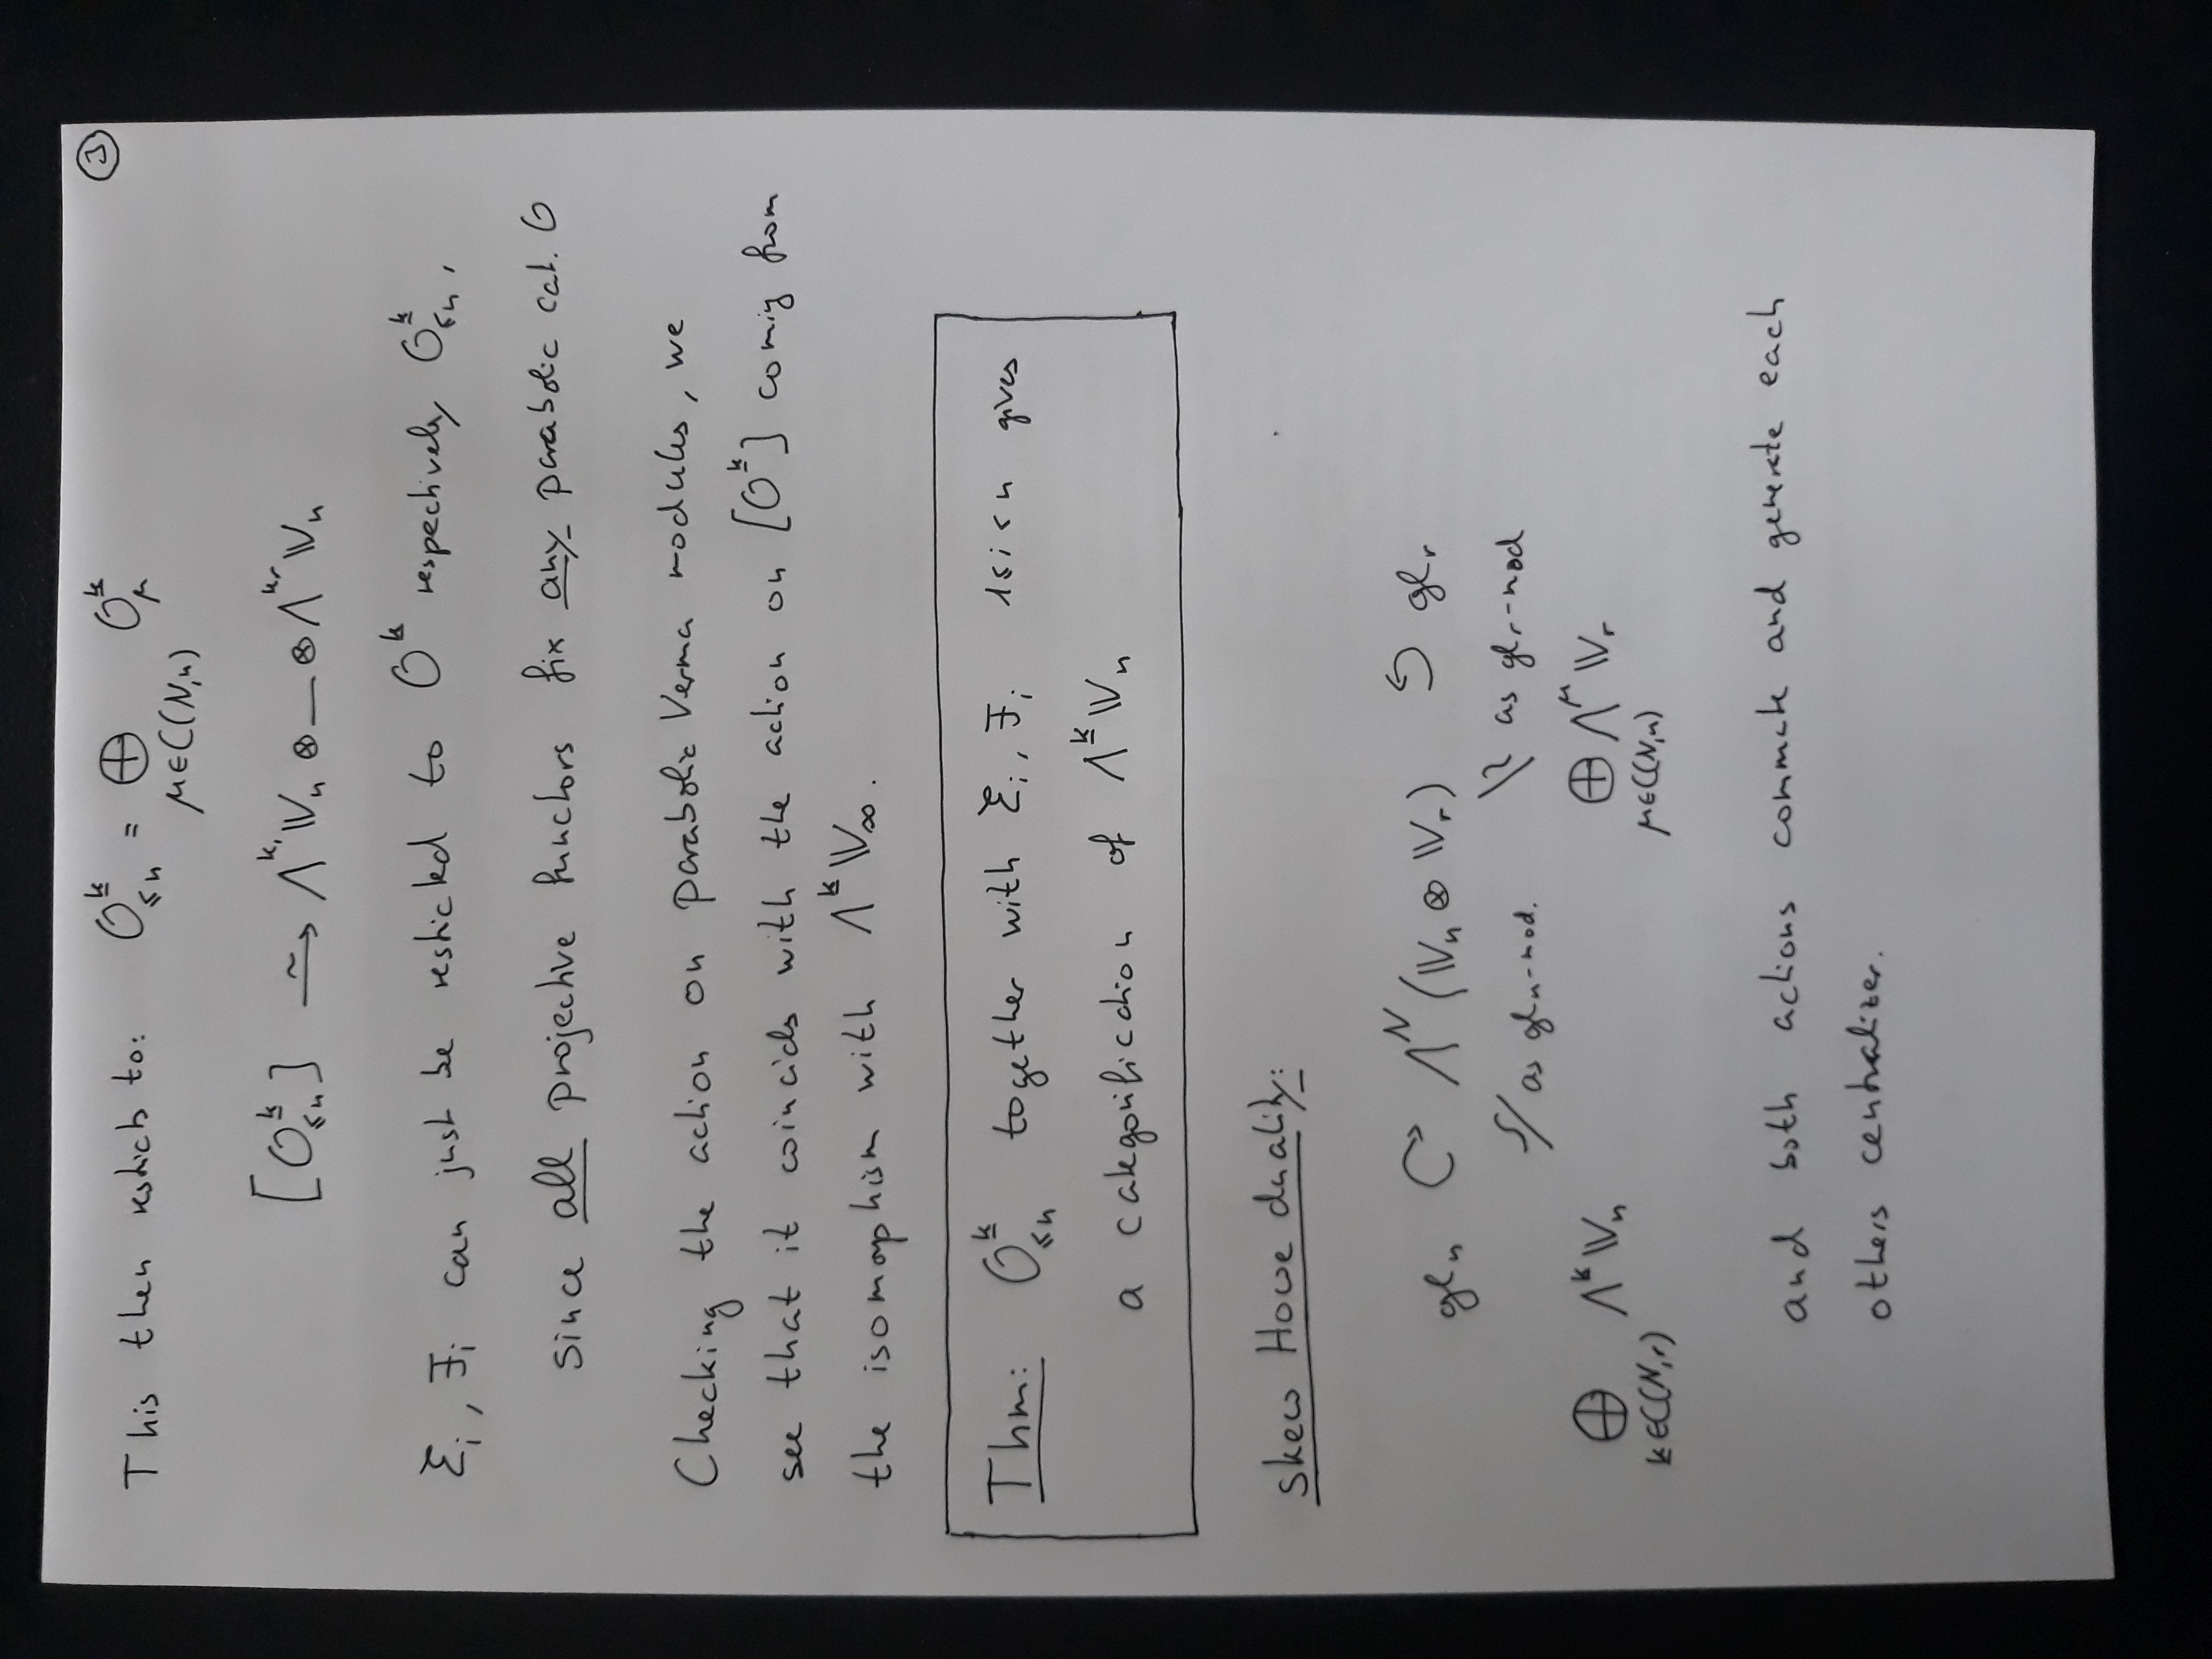 ③
This then restricts to: $\mathcal{O}^{\underline{k}}_{\leq n} = \bigoplus_{\mu \in C(N,n)} \mathcal{O}^{\underline{k}}_{\mu}$
$[\mathcal{O}^{\underline{k}}_{\leq n}] \xrightarrow{\sim} \Lambda^{k_1} \mathbb{V}_n \otimes — \otimes \Lambda^{k_r} \mathbb{V}_n$
$\mathcal{E}_i, \mathcal{F}_i$ can just be resticted to $\mathcal{O}^{\underline{k}}$ respectively $\mathcal{O}^{\underline{k}}_{\leq n}$,
since all projective functors fix any parabolic cat. $\mathcal{O}$
Checking the action on parabolic Verma modules, we
see that it coincids with the action on $[\mathcal{O}^{\underline{k}}]$ coming from
the isomorphism with $\Lambda^{\underline{k}} \mathbb{V}_\infty$.
Thm: $\mathcal{O}^{\underline{k}}_{\leq n}$ together with $\mathcal{E}_i, \mathcal{F}_i$ $1 \leq i < n$ gives
a categorification of $\Lambda^{\underline{k}} \mathbb{V}_n$
skew Howe duality:
$gl_n$ ↻ $\Lambda^N (\mathbb{V}_n \otimes \mathbb{V}_r)$ ↺ $gl_r$
≀/ as $gl_n$-mod. \≀ as $gl_r$-mod
$\bigoplus_{\underline{k} \in C(N,r)} \Lambda^{\underline{k}} \mathbb{V}_n$ $\bigoplus_{\mu \in C(N,n)} \Lambda^{\mu} \mathbb{V}_r$
and both actions commute and generate each
others centralizer.